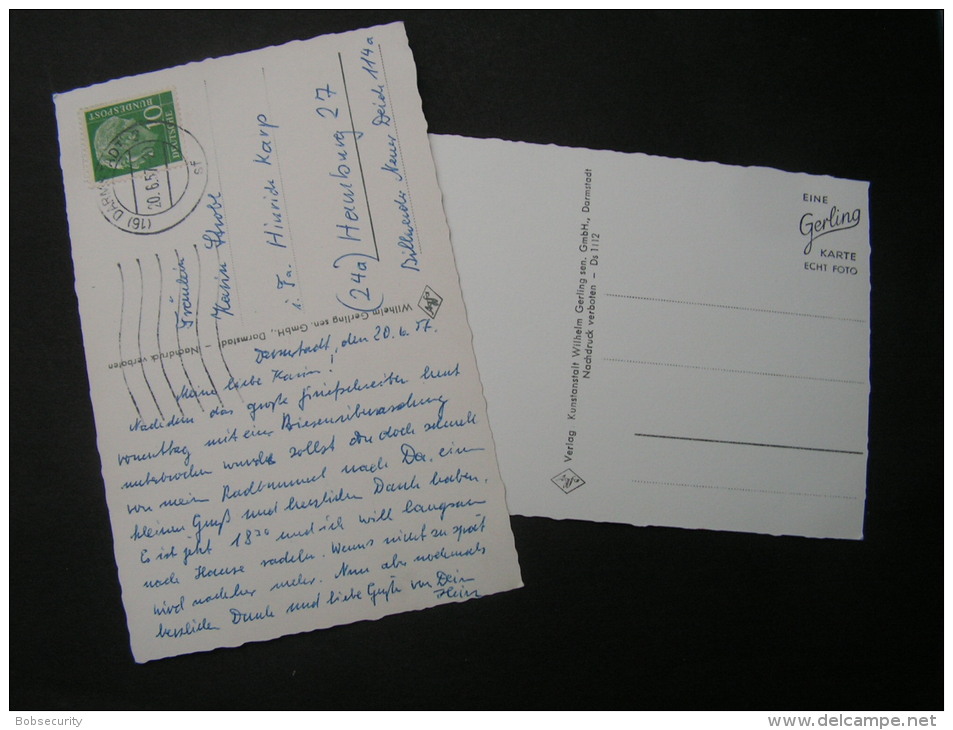 DEUTSCHE
BUNDESPOST
10
(16) DARMSTADT
20.6.57
sf
Fräulein
Karin Strobl
i. Fa. Hinrich Karp
(24a) Hamburg 27
Billwerder Neuer Deich 114a
Wilhelm Gerling sen. GmbH., Darmstadt – Nachdruck verboten
Darmstadt, den 20.6.57.
Meine liebe Karin!
Nachdem das große Briefschreiben heut
vormittag mit einer Riesenüberraschung
unterbrochen wurde sollst du doch schnell
von meim Radbummel nach Da. ein
kleinen Gruß und herzlichen Dank haben.
Es ist jetzt 18³⁰ und ich will langsam
nach Hause radeln. Wenns nicht zu spät
wird nachher mehr. Nun aber nochmals
herzlichen Dank und liebe Grüße von Dein
Heinz
EINE
Gerling
KARTE
ECHT FOTO
Verlag Kunstanstalt Wilhelm Gerling sen. GmbH., Darmstadt
Nachdruck verboten – Ds 1112
Bobsecurity
delcampe.net